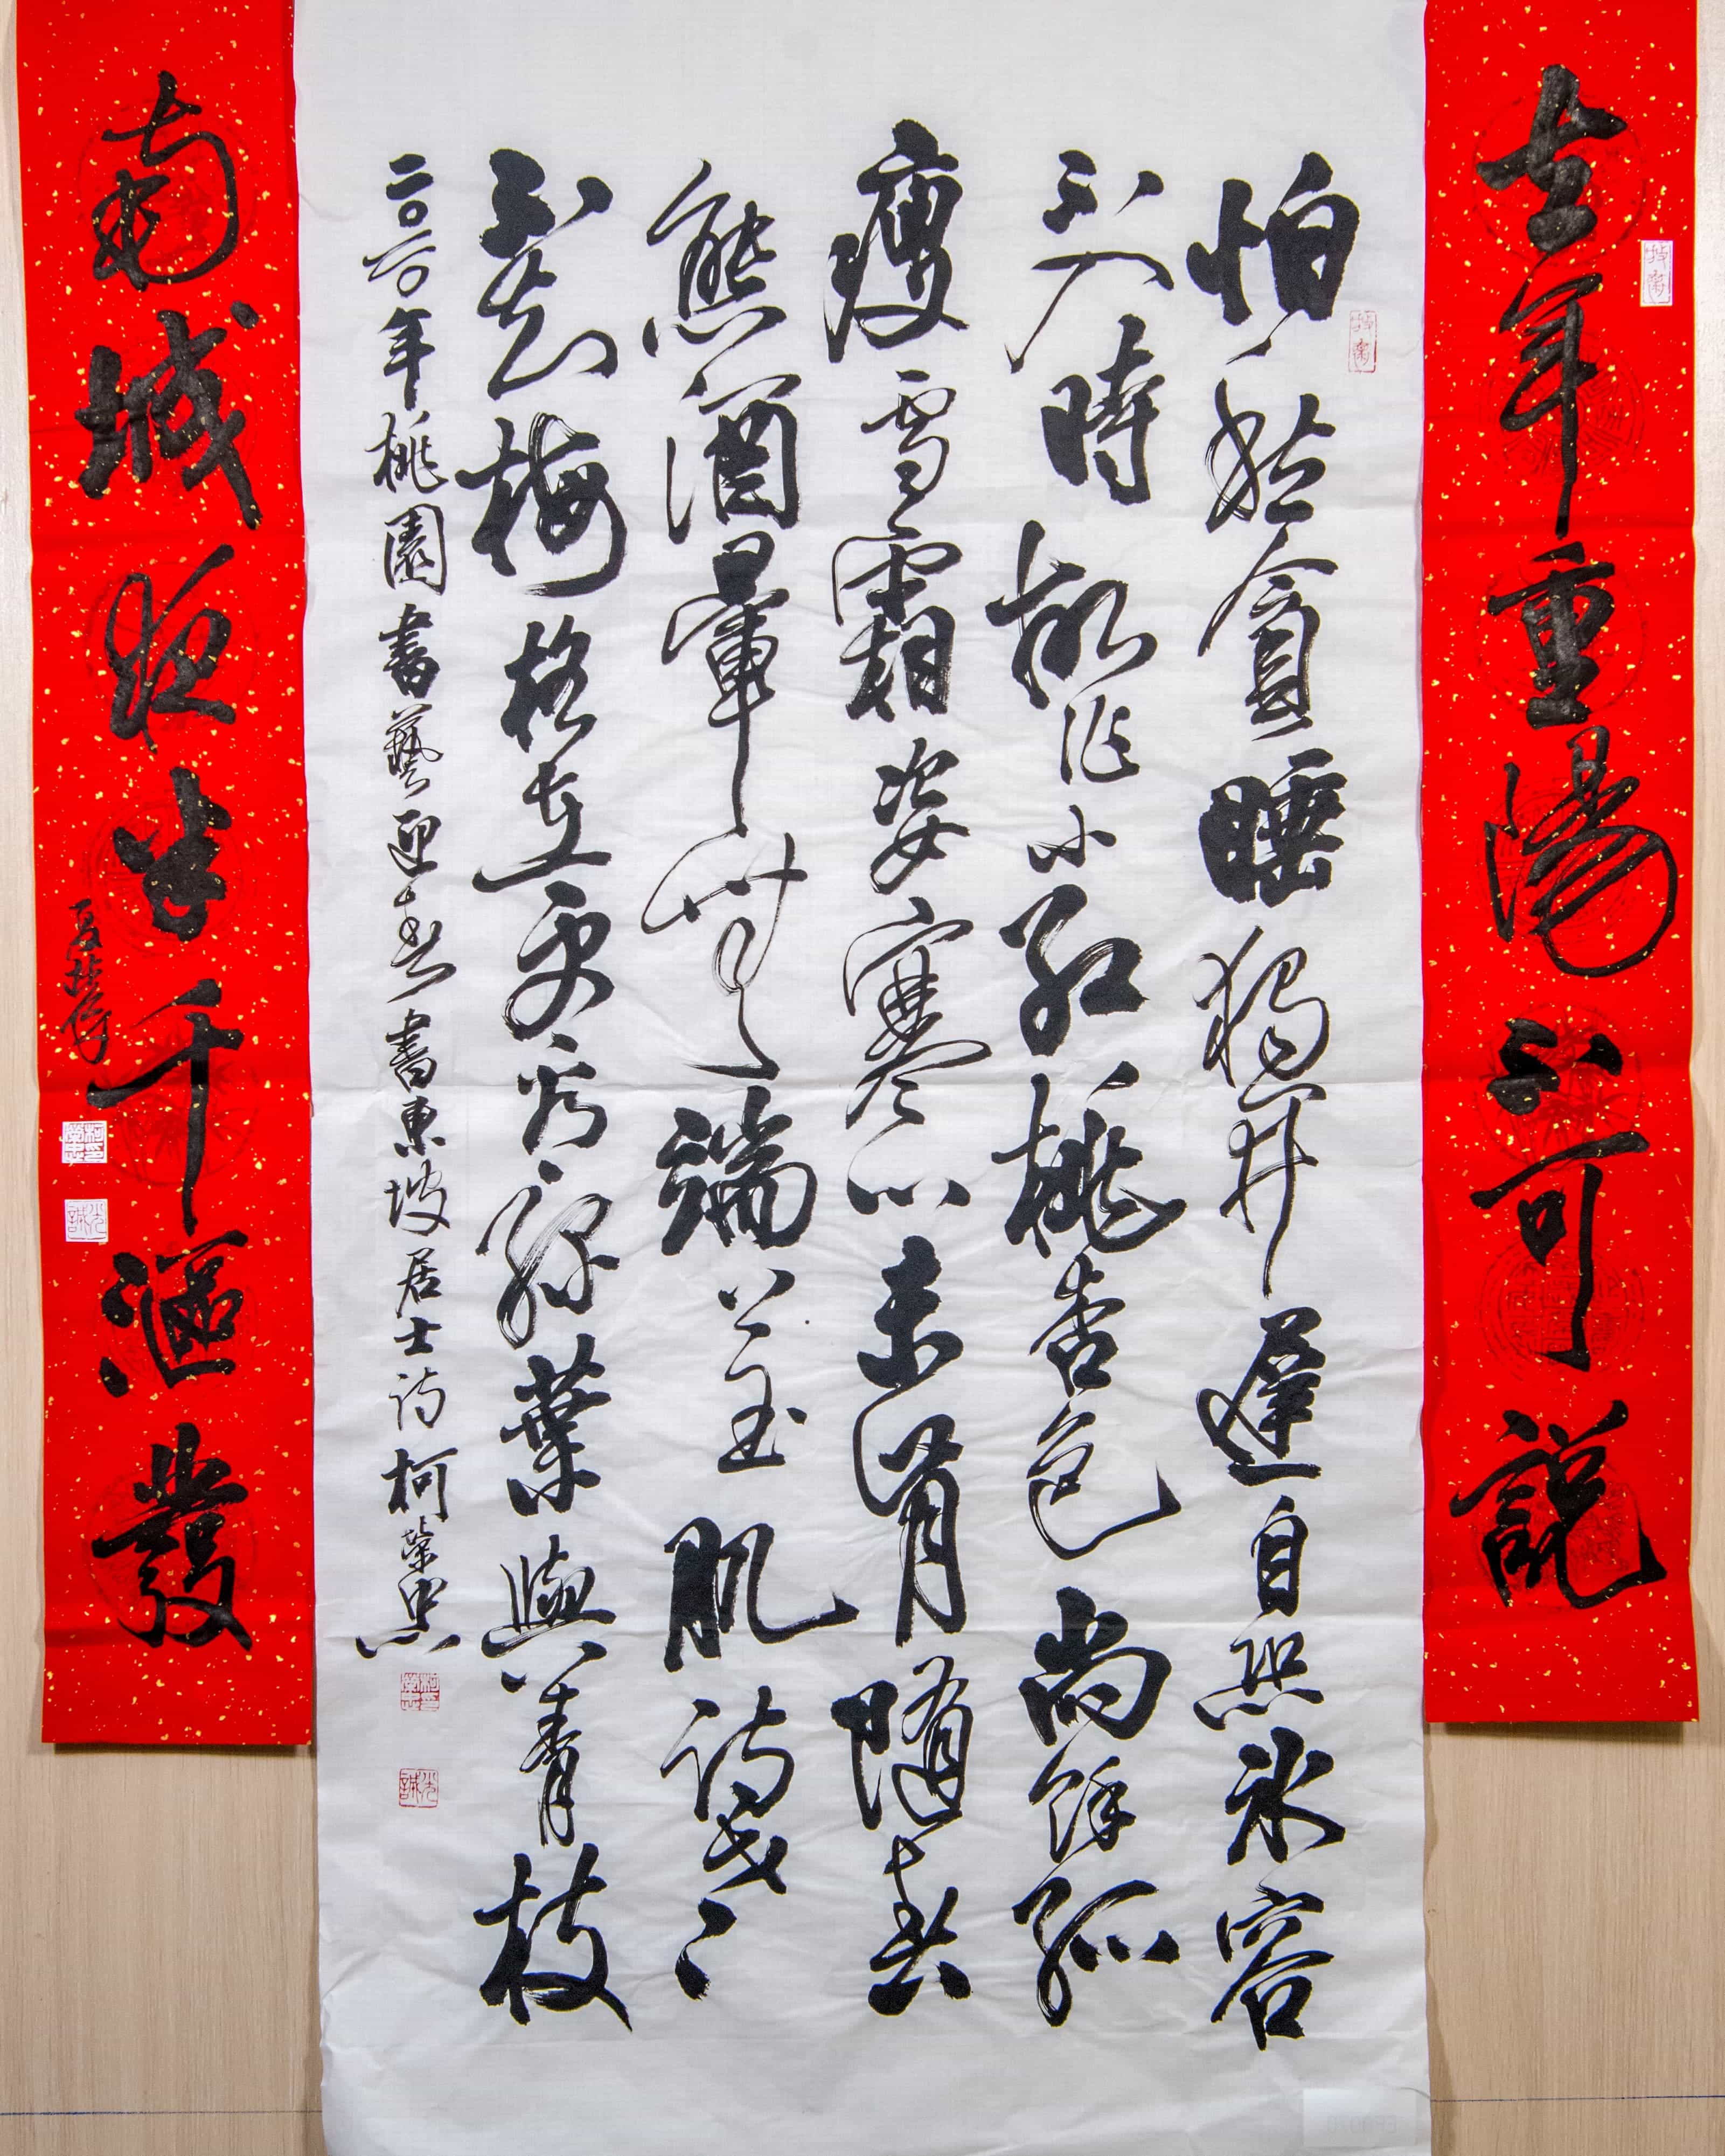 去年重陽不可說
怕愁貪睡獨開遲自恐冰容
不入時故作小紅桃杏色尚餘孤
瘦雪霜姿寒心未肯隨春
態酒暈無端上玉肌詩老
不知梅格在更看綠葉與青枝
二〇二〇年桃園書藝迎春書東坡居士詩柯榮忠
南城夜半千漚發